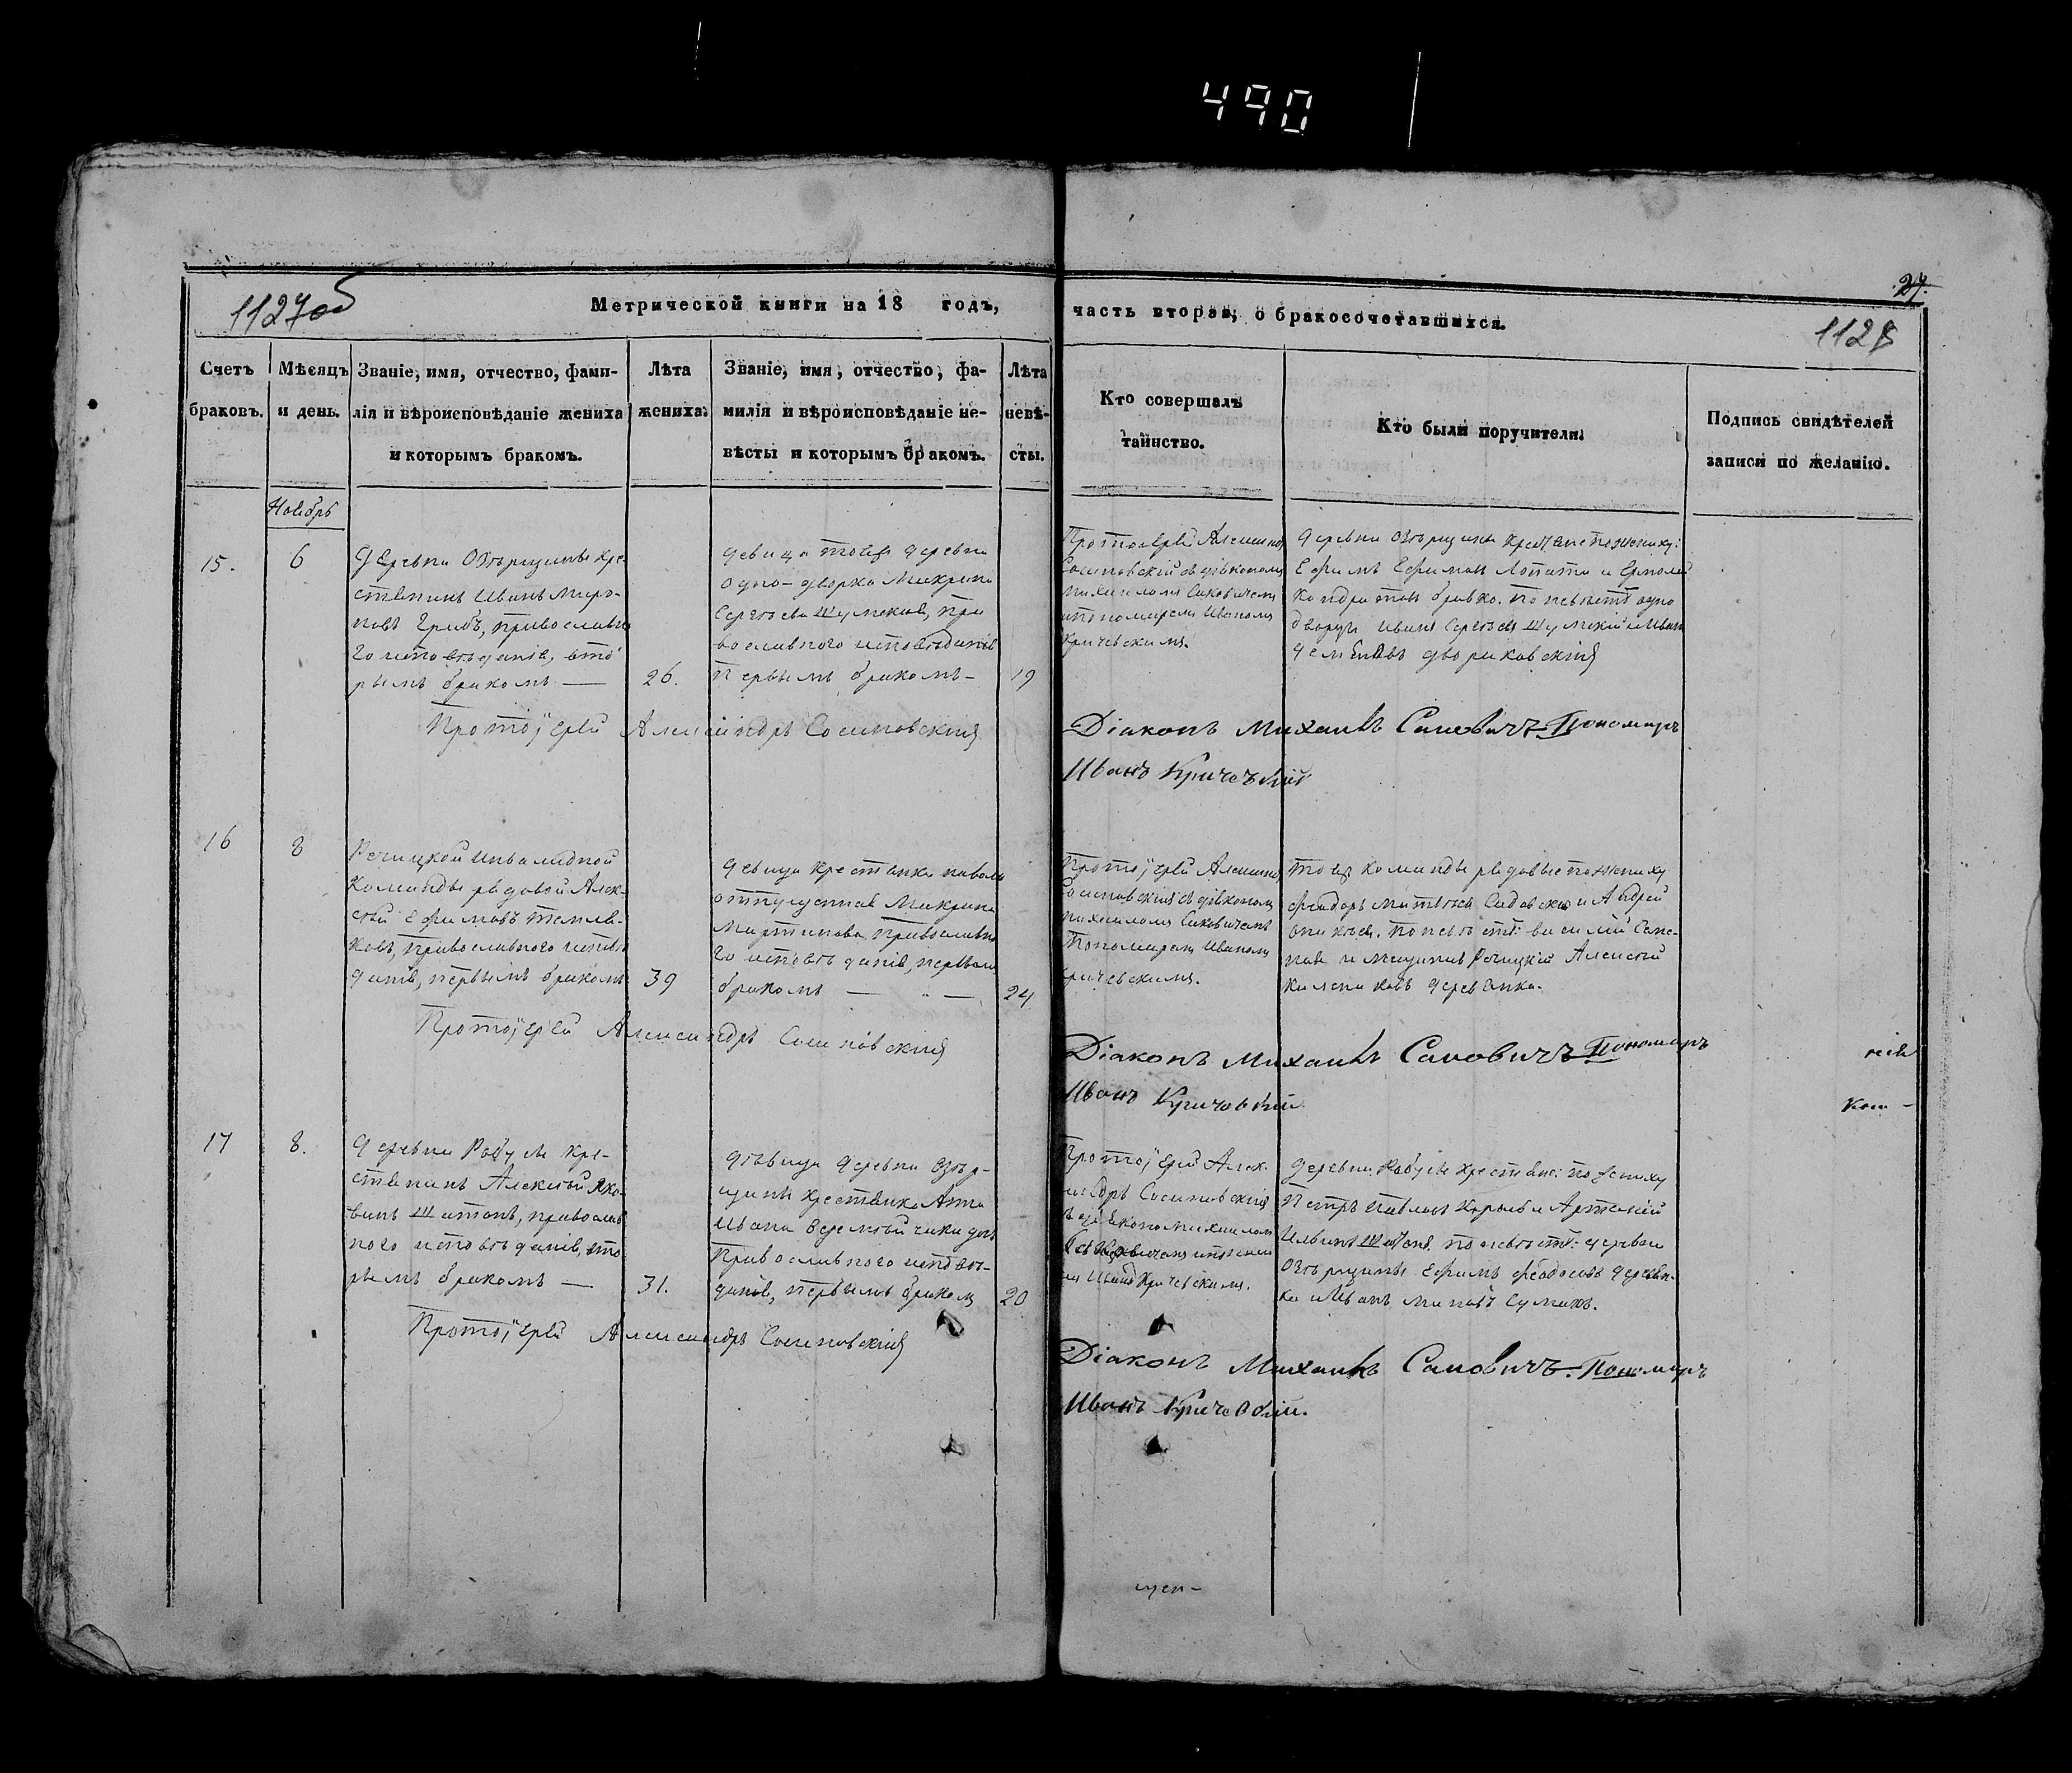 490
27.
1127об
Метрической книги на 18 годъ,
часть вторая, о бракосочетавшихся.
1128
Счетъ браковъ.
Мѣсяцъ и день.
Званіе, имя, отчество, фами-
лія и вѣроисповѣданіе жениха
и которымъ бракомъ.
Лѣта
жениха.
Званіе, имя, отчество, фа-
милія и вѣроисповѣданіе не-
вѣсты и которымъ бракомъ.
Лѣта
невѣ-
сты.
Кто совершалъ
таинство.
Кто были поручители.
Подпись свидѣтелей
записи по желанію.
Ноябрь
15.
6
Деревни Озерщины кре-
стянинъ Иванъ Миро-
новъ Грибъ, православна
го исповѣданія, вто
рымъ бракомъ —
26.
девица тоея деревни
одно-дворка Макрина
Сергѣева Шумская, пра
вославного исповѣданія
первымъ бракомъ —
19
Протоіерей Александ
Сосиновскій съ діакономъ
Михаиломъ Саковичемъ
и пономаремъ Иваномъ
Кричевскимъ.
деревни Озѣрщины крестяне по жениху:
Ефимъ Ефимовъ Лопата и Ермолай
Кондратовъ бравко. по невѣстѣ одно
дворцы Иванъ Сергѣевъ Шумскій и Иванъ
двораковскій
Протоіерей Александръ Сосиновскій
Діаконъ Михаилъ Саковичъ Пономарь
Иванъ Кричевскій
16
8
Речицкой инвалидной
Команды рядовой Алек-
сѣй Ефимовъ
православного исповѣ
данія, первымъ бракомъ
39
девица крестянка
отпущенная Макрина
Мартинова православна
го исповѣданія, первымъ
бракомъ —
24
Протоіерей Александ
Сосиновскій съ діакономъ
Михаиломъ Саковичемъ
Пономаремъ Иваномъ
Кричевскимъ.
тоея команды рядовые по жениху
Феодоръ Матвѣевъ Садовскій и Андрей
по невѣстѣ: василій Семе-
новъ и мещанинъ Речицкій Алексѣй
деревянко.
Протоіерей Александръ Сосиновскій
Діаконъ Михаилъ Саковичъ Пономарь
Иванъ Кричевскій
17
8.
Деревни Ровуси кре-
стянинъ Алексѣй Яко-
влевъ православ
ного исповѣданія, вто
рымъ бракомъ —
31.
дѣвица деревни Озѣр-
щины крестянка Анна
Ивана дочь
Православного исповѣ-
данія, первымъ бракомъ
20
Протоіерей Алек-
сандръ Сосиновскій
съ діакономъ Михаиломъ
Саковичемъ и понома
мъ Иваномъ Кричевскимъ.
деревни крестяне: по жениху
Петръ Павловъ Король и Артемій
по невѣстѣ: деревни
Озѣрщины Ефимъ Феодосовъ деревян-
ка и Иванъ Минавъ Сумакъ.
Протоіерей Александръ Сосиновскій
Діаконъ Михаилъ Саковичъ. Пономарь
Иванъ Кричевскій.